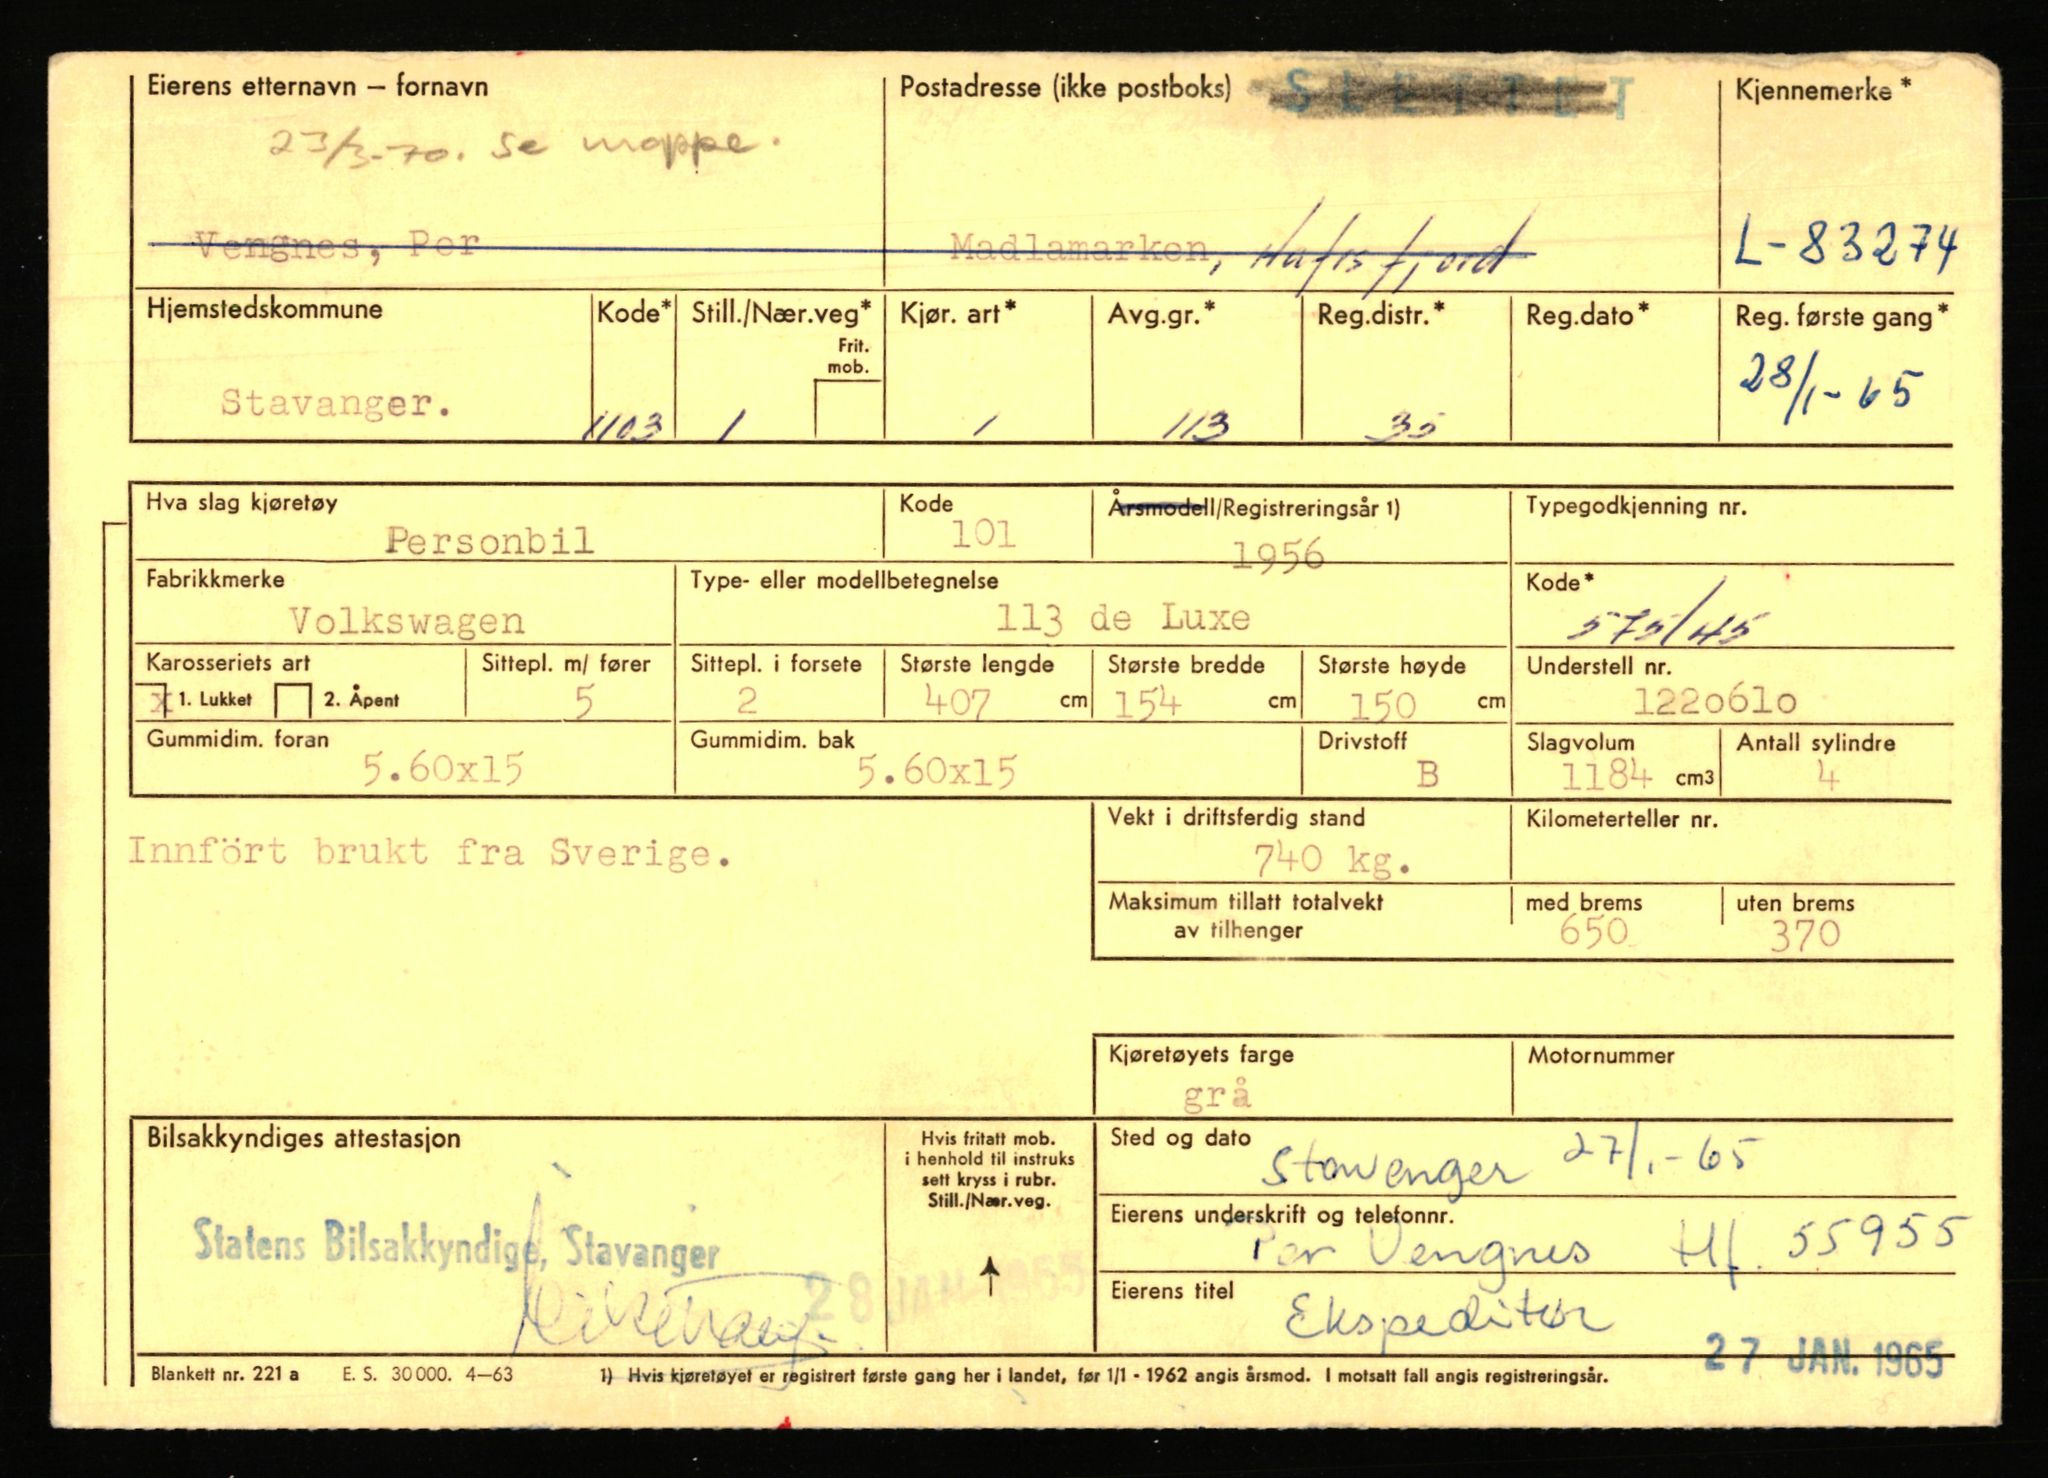 Eierens etternavn – fornavn
Postadresse (ikke postboks)
SLETTET
Kjennemerke*
23/3-70. Se mappe.
Vengnes, Per
Madlamarken, Hafrsfjord
L-83274
Hjemstedskommune
Kode*
Still./Nær.veg*
Frit. mob.
Kjør. art*
Avg.gr.*
Reg.distr.*
Reg.dato*
Reg. første gang*
Stavanger.
1103
1
1
113
35
28/1-65
Hva slag kjøretøy
Kode
Årsmodell/Registreringsår 1)
Typegodkjenning nr.
Personbil
101
1956
Fabrikkmerke
Type- eller modellbetegnelse
Kode*
Volkswagen
113 de Luxe
575/45
Karosseriets art
Sittepl. m/ fører
Sittepl. i forsete
Største lengde
Største bredde
Største høyde
Understell nr.
x 1. Lukket
2. Åpent
5
2
407 cm
154 cm
150 cm
1220610
Gummidim. foran
Gummidim. bak
Drivstoff
Slagvolum
Antall sylindre
5.60x15
5.60x15
B
1184 cm3
4
Vekt i driftsferdig stand
Kilometerteller nr.
Innfört brukt fra Sverige.
740 kg.
Maksimum tillatt totalvekt
av tilhenger
med brems
uten brems
650
370
Kjøretøyets farge
Motornummer
grå
Bilsakkyndiges attestasjon
Hvis fritatt mob.
i henhold til instruks
sett kryss i rubr.
Still./Nær.veg.
Sted og dato
Stavanger 27/1-65
Statens Bilsakkyndige, Stavanger
28 JAN 1965
Eierens underskrift og telefonnr.
Per Vengnes tlf. 55955
Eierens titel
Ekspeditør
27 JAN. 1965
Blankett nr. 221 a E. S. 30 000. 4–63
1) Hvis kjøretøyet er registrert første gang her i landet, før 1/1 - 1962 angis årsmod. I motsatt fall angis registreringsår.